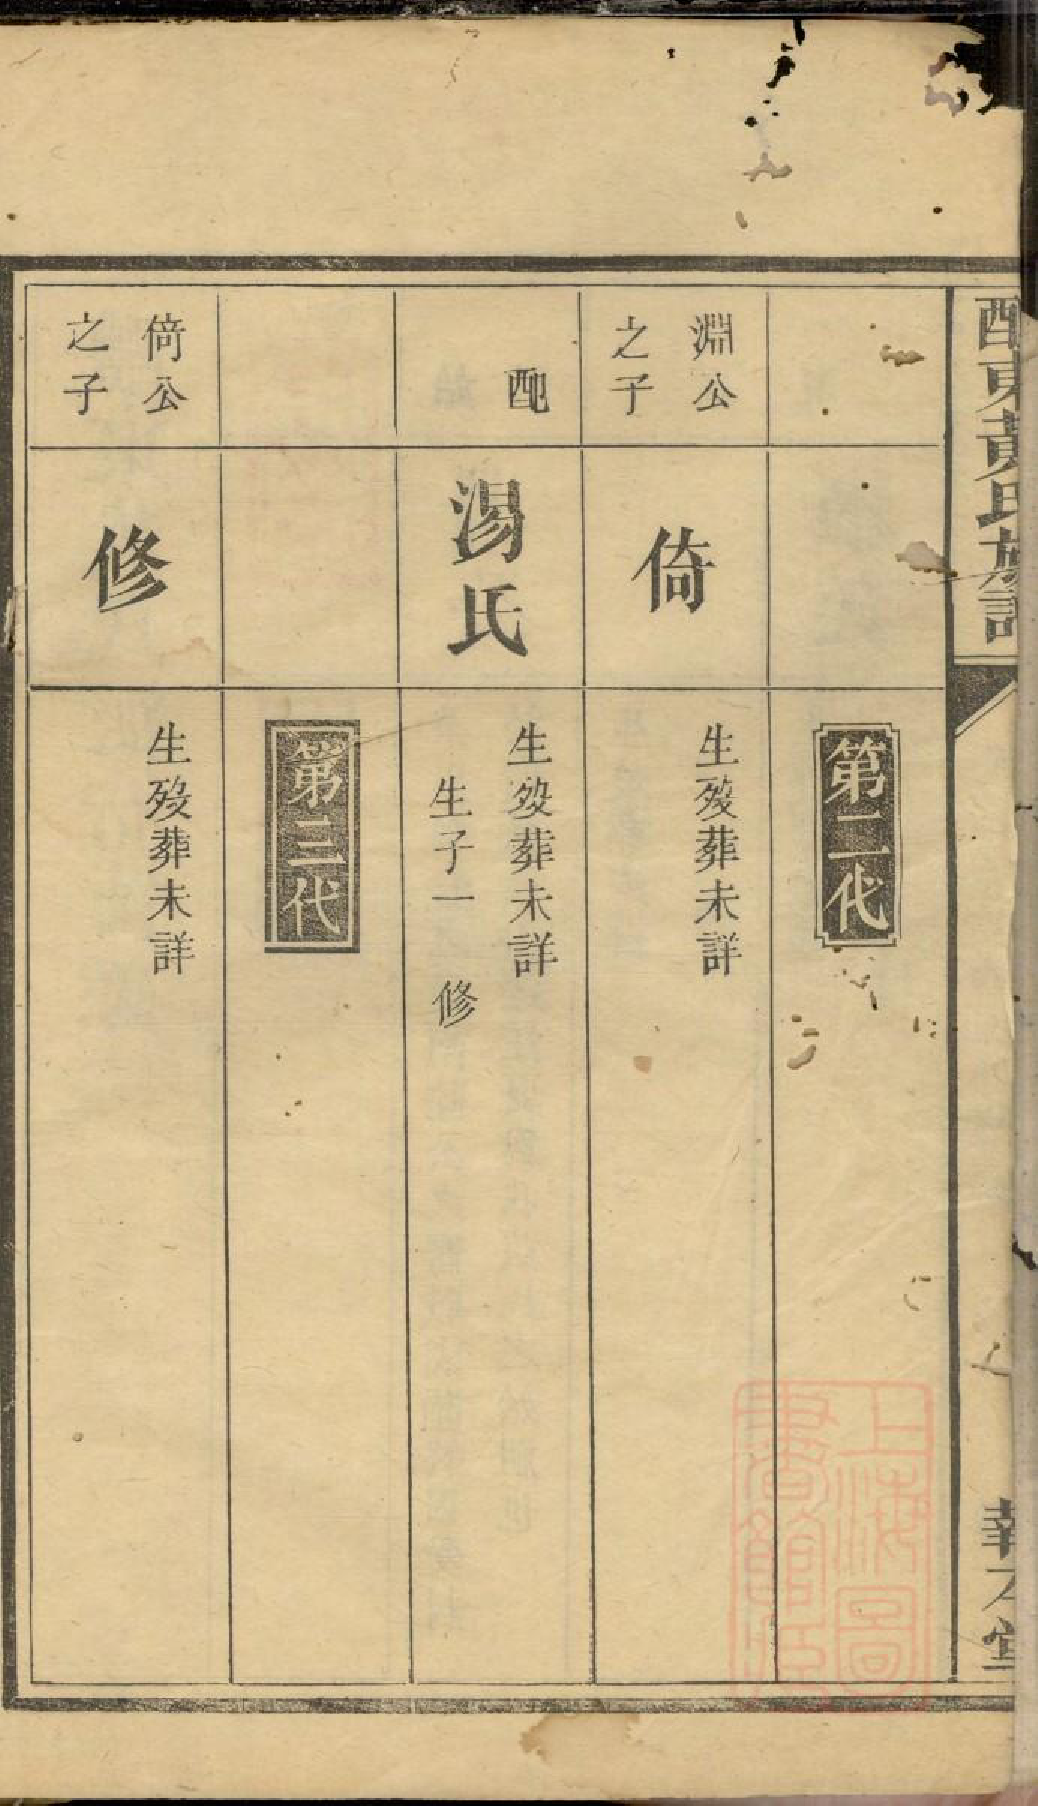 東黃氏族譜
堂
第二代
淵公
之子
倚
生歿葬未詳
配
湯氏
生歿葬未詳
生子一 修
第三代
倚公
之子
修
生歿葬未詳
上海圖
書館藏